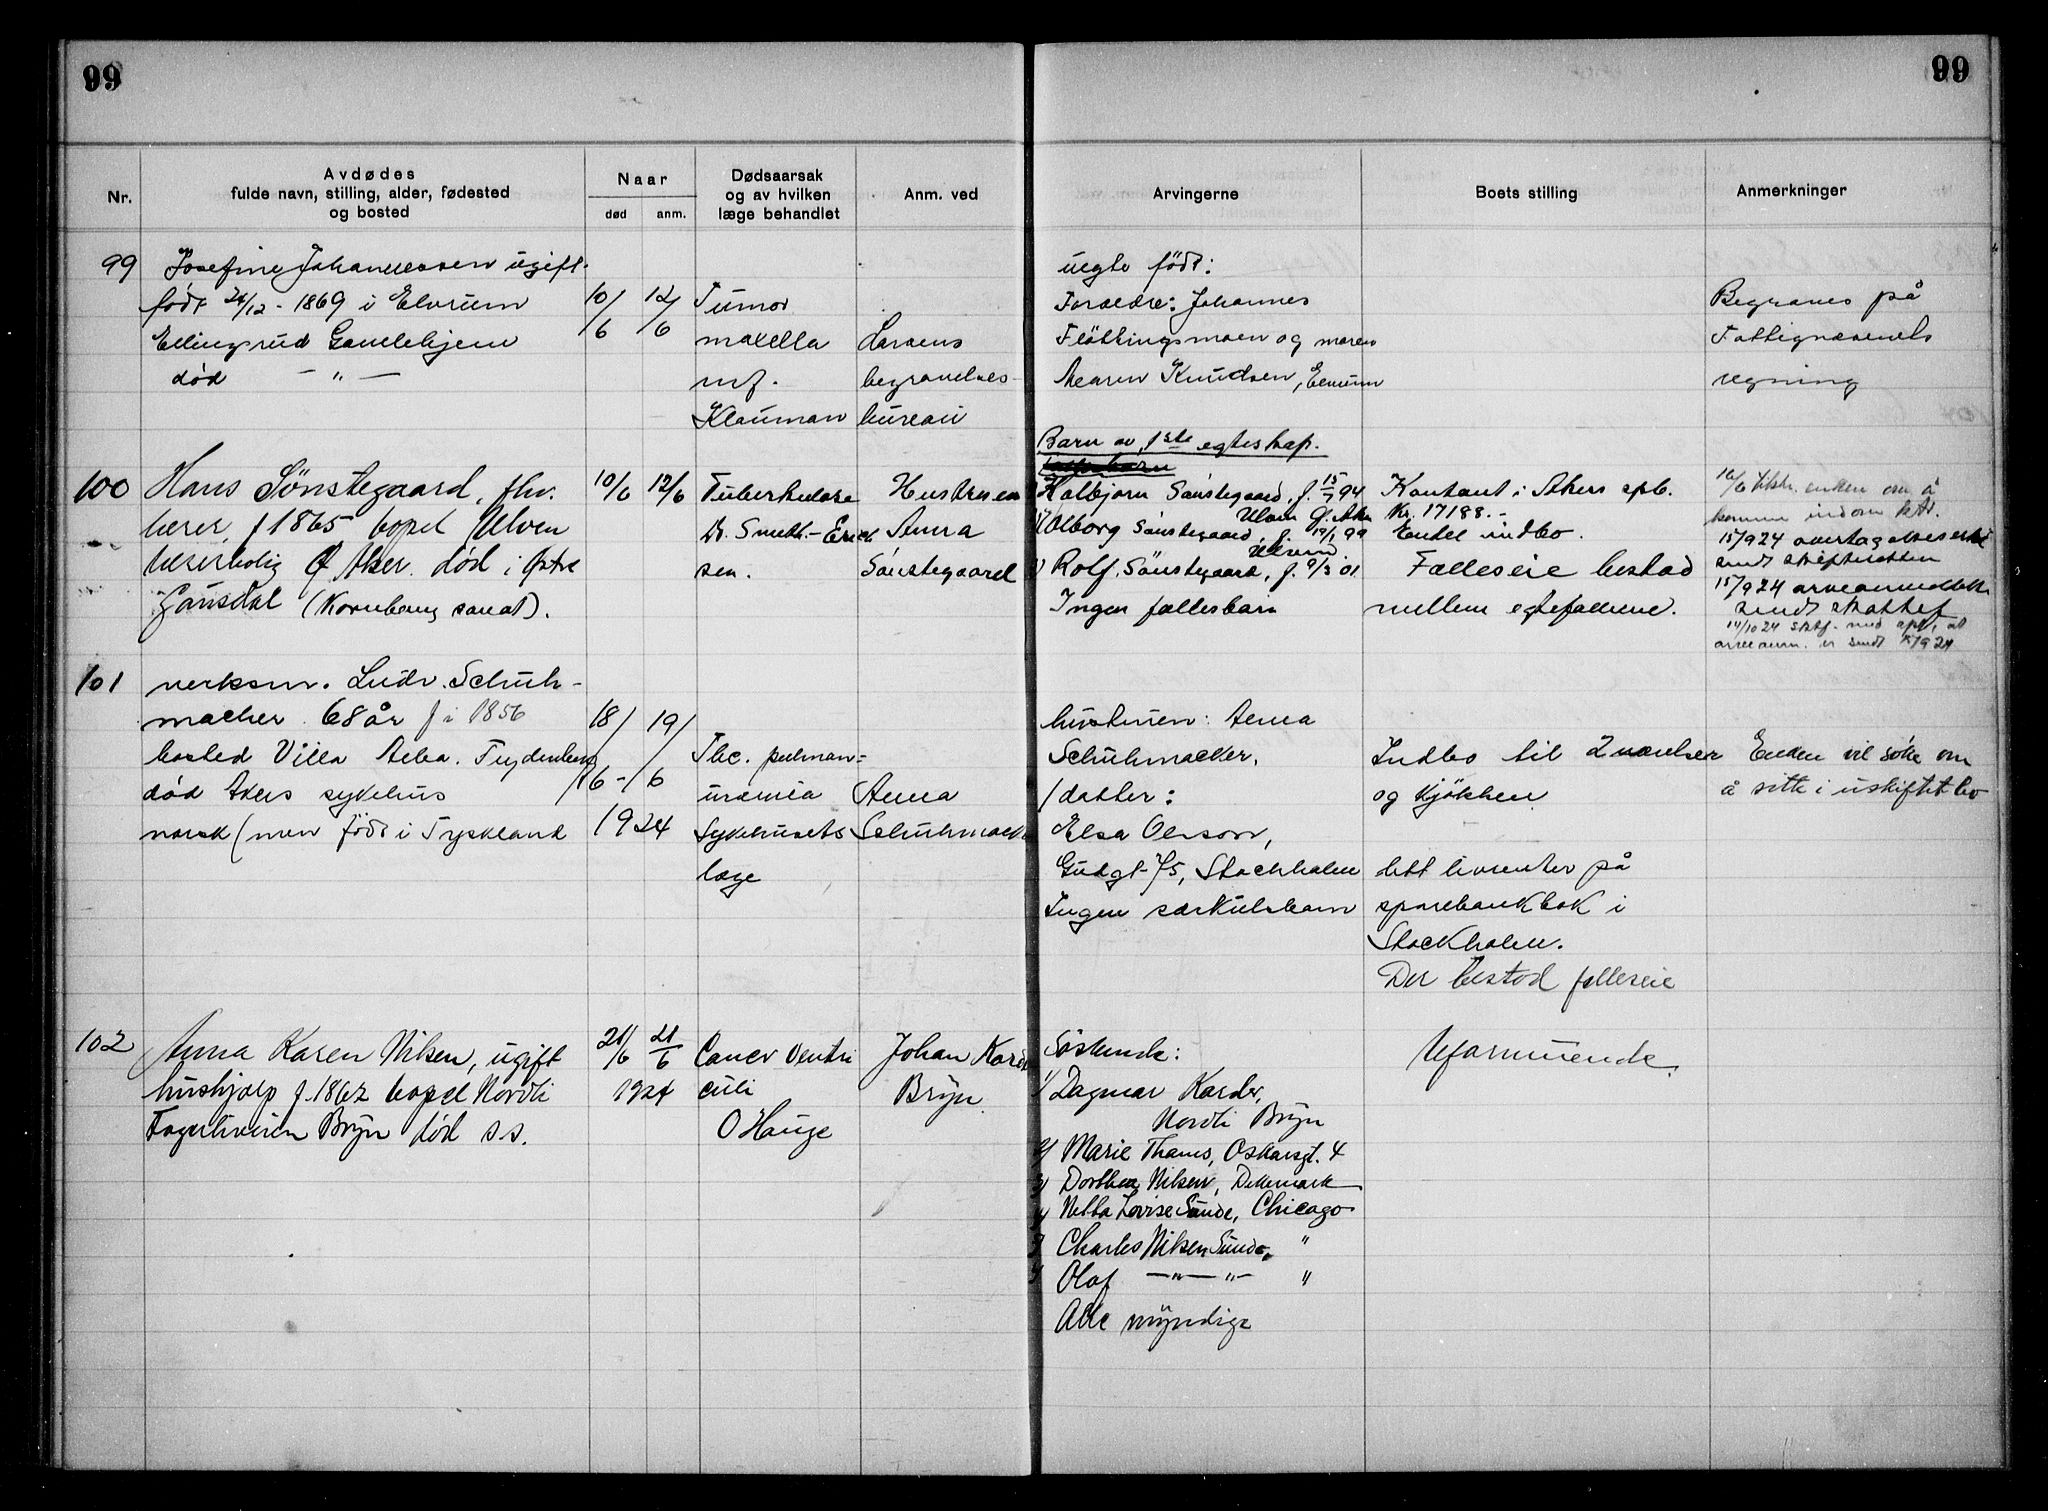 99
99
Nr.
Avdødes
fulde navn, stilling, alder, fødested
og bosted
Naar
død
anm.
Dødsaarsak
og av hvilken
læge behandlet
Anm. ved
Arvingerne
Boets stilling
Anmerkninger
99
Josefine Johannessen ugift.
født 24/12 - 1869 i Elverum
Ellingsrud Gamlehjem
død - " -
10/6
12/6
Tumor
maxella
m.f.
Klauman
Larsens
begravelses-
bureau
uegte født:
Forældre: Johannes
Fløttingsmoen og moren
Maren Knudsen, Elverum
Begraves på
Fattigvæsenets
regning
100
Hans Sønstegaard, fhv.
lærer, f 1865 bopel Ulven
lærerbolig Ø Aker. død i Østre
Gausdal (Kornhaug sanat).
10/6
12/6
Tuberkulose
Dr. Smeth.-Erich
sen.
Hustruen
Anna
Sønstegaard
Barn av 1ste egteskap.
Halbjørn Sønstegaard, f. 15/7 94
Ulven Ø. Aker
Olborg Sønstegaard, f. 19/1 99
Rolf Sønstegaard, f. 9/3 01
Ingen fællesbarn
Kontant i Akers spb.
Kr. 17188.-
Endel indbo.
Fælleseie bestod
mellem egtefællene.
enken om å
komme indom
15/9 24
sendt skifteretten
15/9 24 arveanmeldelse
sendt skattef
14/10 24 skatf. med opl, at
arveanm. er sendt 15/9 24
101
verksm. Ludv. Schuh-
macher 68 år f i 1856
bosted Villa Alba. Frydenberg
død Akers sykehus
norsk (men født i Tyskland
18/6 -
19/6
1924
Tbc. pulmon=
uræmia
Sykehusets
læge
Anna
Schuhmacher
hustruen: Anna
Schuhmacker,
1 datter:
Elsa Olsson,
Gudgt 75, Stockholm
Ingen særkulsbarn
Indbo til 2 værelser
og kjøkken
litt livrenter på
sparebankbok i
Stockholm.
Der bestod felleseie
Enken vil søke om
å sitte i uskiftet bo
102
Anna Karen Nilsen, ugift
hushjælp f. 1862 bopel Nordli
Fagerliveien Bryn død s.s.
21/6
21/6
1924
Cancr Ventri
culi
O Hauge
Johan Karder
Bryn
Søskende:
1/ Dagmar Karder,
Nordli Bryn
2/ Marie Thams, Oskarsgt. 4
3/ Dorthea Nilsen, Denmark
4/ Netta Lovise Sunde, Chicago
5/ Charles Nilsen Sunde, "
6/ Olaf - " - " - "
Alle myndige
Uformuende